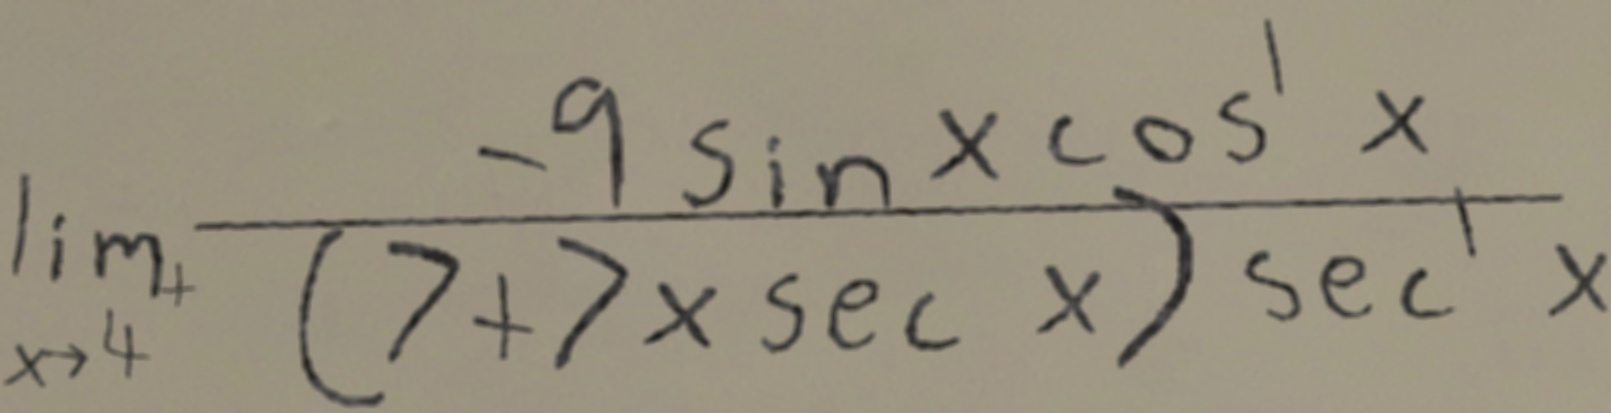 \lim_{x \to 4^+} \frac{-9 \sin x \cos^1 x}{(7 + 7x \sec x) \sec^1 x}